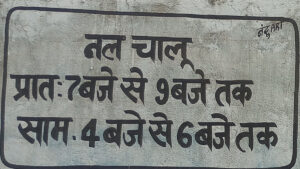 नल चालू
प्रातः 7 बजे से 9 बजे तक
साम. 4 बजे से 6 बजे तक